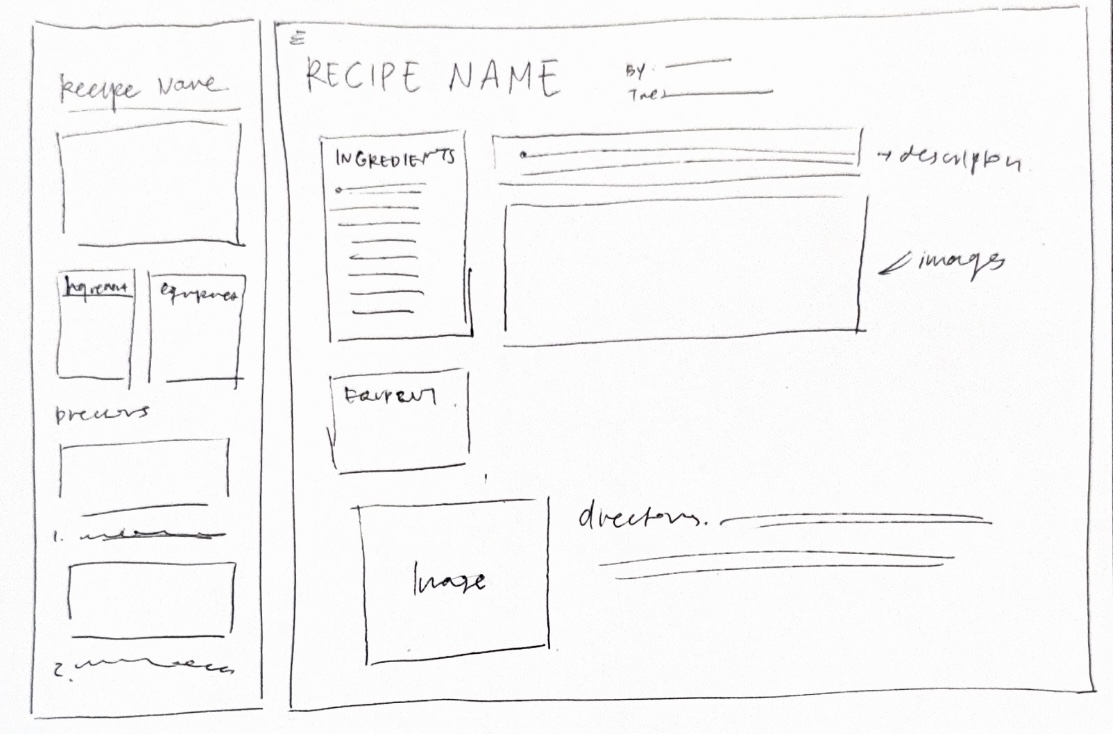 Recipe Name
Ingredient
equipment
Directions
1.
2.
RECIPE NAME
BY:
INGREDIENTS
→ description
images
EQUIPMENT
Image
directions.